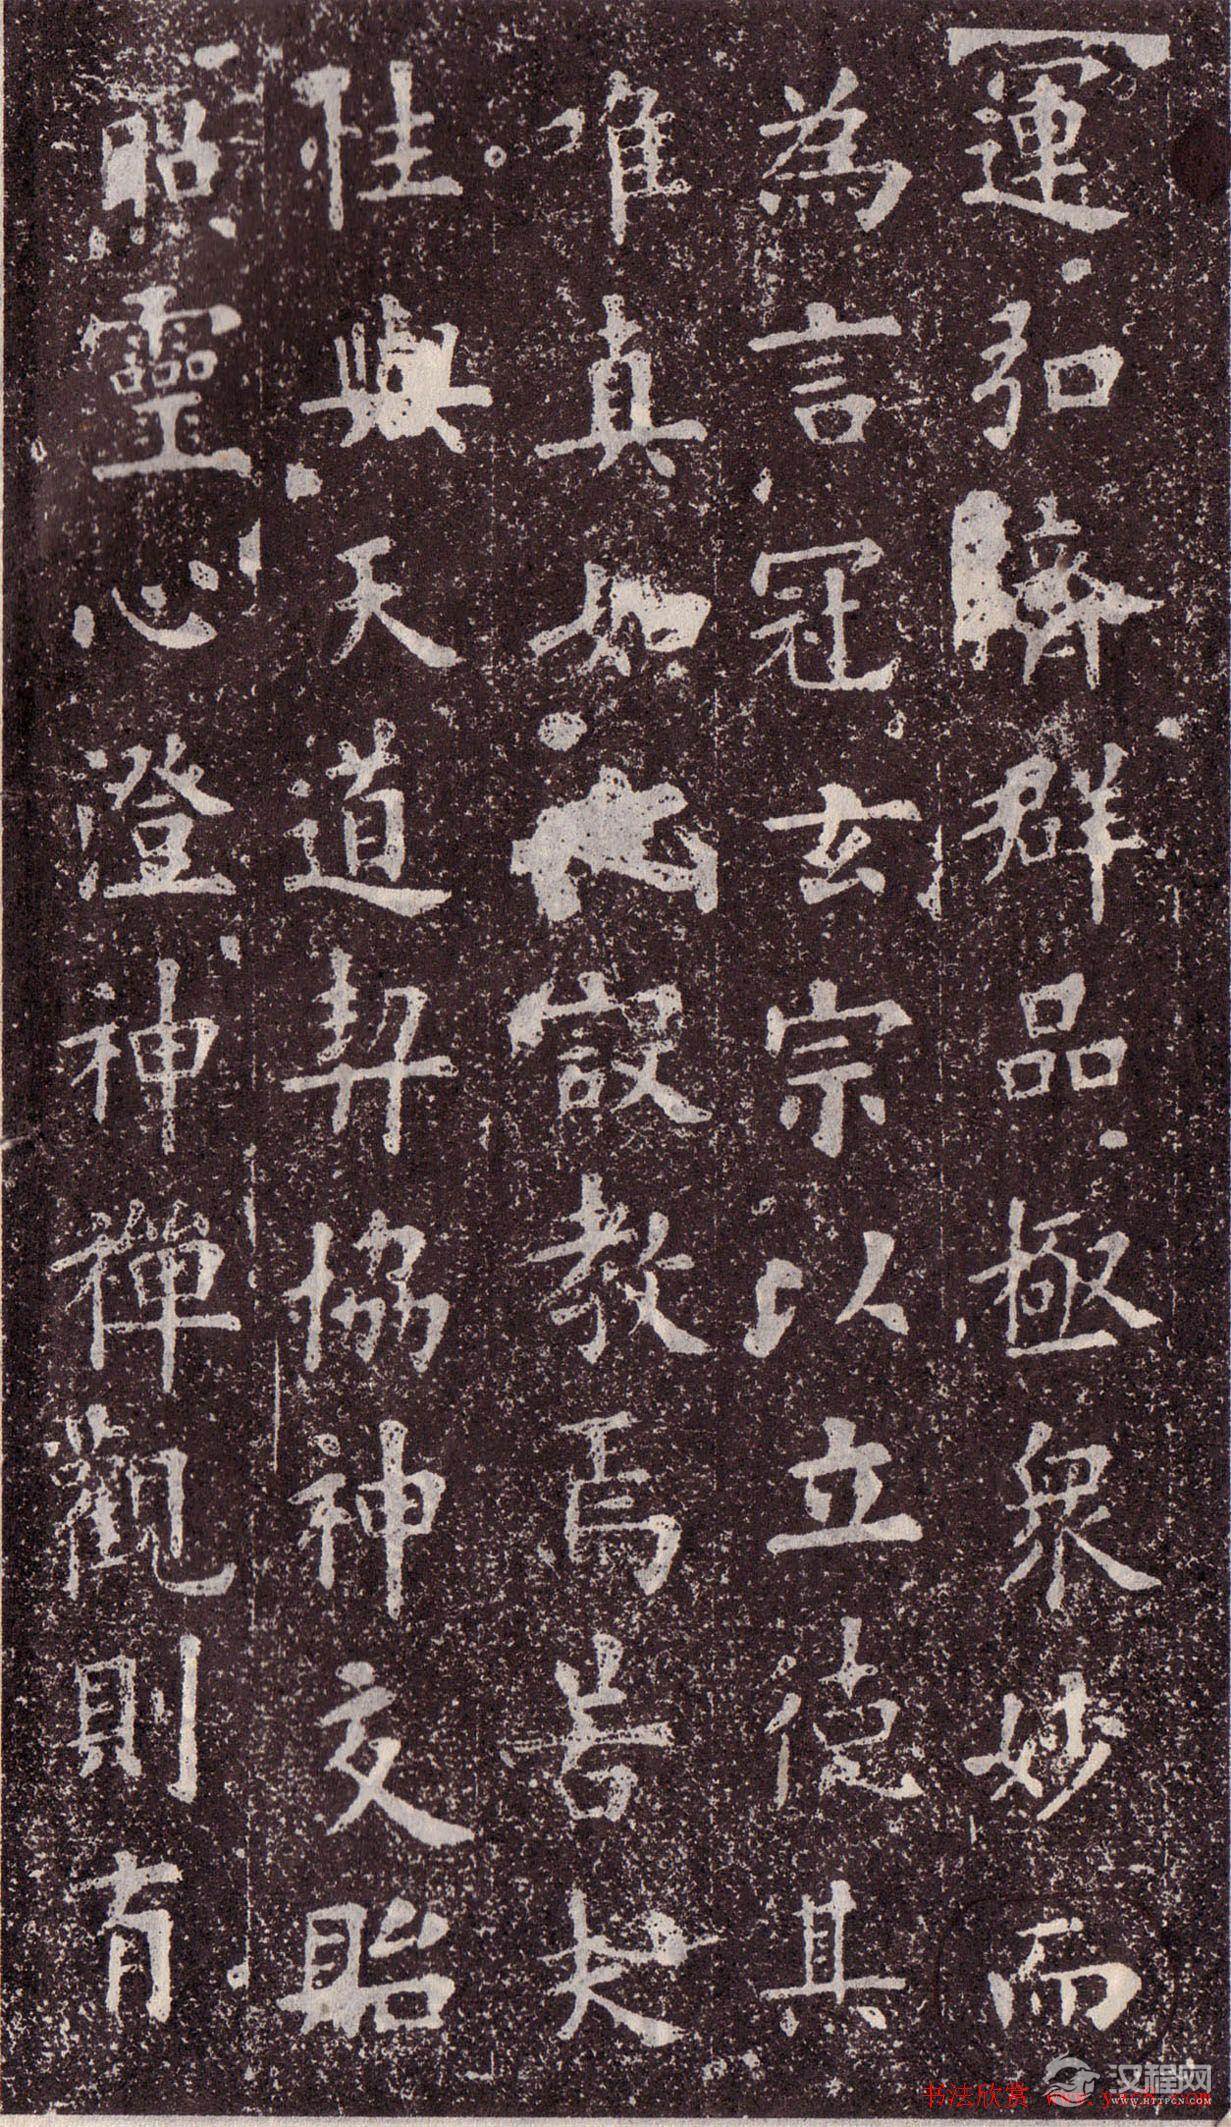 運弘濟群品極衆妙而
為言冠玄宗以立德其
唯真如之設教焉若夫
性與天道契協神交貽
照靈心澄神禪觀則有
书法欣赏 www.y
汉程网
WWW.HTTPCN.COM